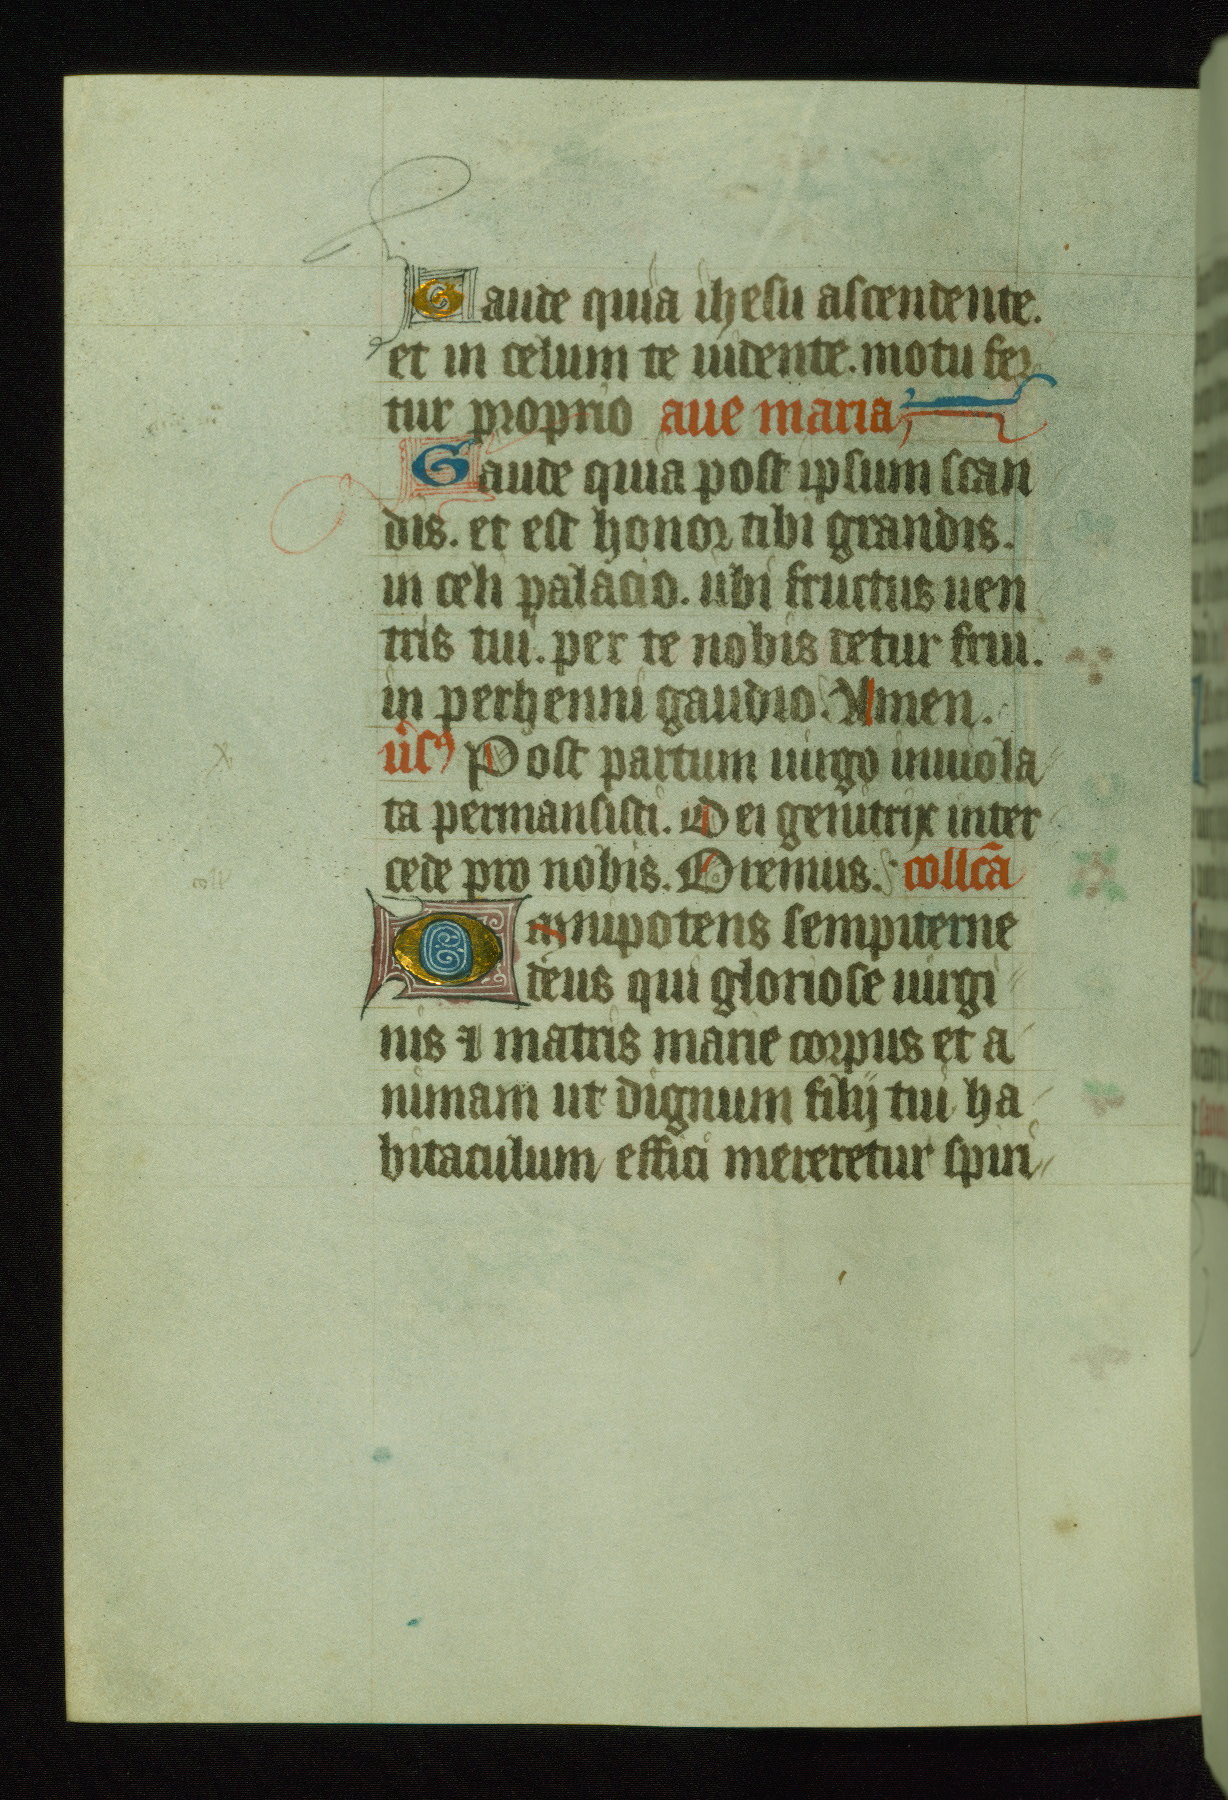 Gaude quia ihesu ascendente.
et in celum te uidente. motu fer
tur proprio aue maria
Gaude quia post ipsum scan
dis. et est honor tibi grandis.
in celi palacio. ubi fructus uen
tris tui. per te nobis detur frui.
in perhenni gaudio. Amen.
u̅sꝰ Post partum uirgo inuiola
ta permansisti. Dei genitrix inter
cede pro nobis. Oremus. collc̅a
Omnipotens sempiterne
deus qui gloriose uirgi
nis ⁊ matris marie corpus et a
nimam ut dignum filij tui ha
bitaculum effici mereretur spiri